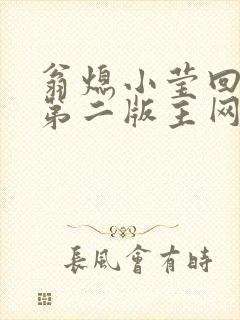 翁熄小莹回
第二版主网
長風會有時